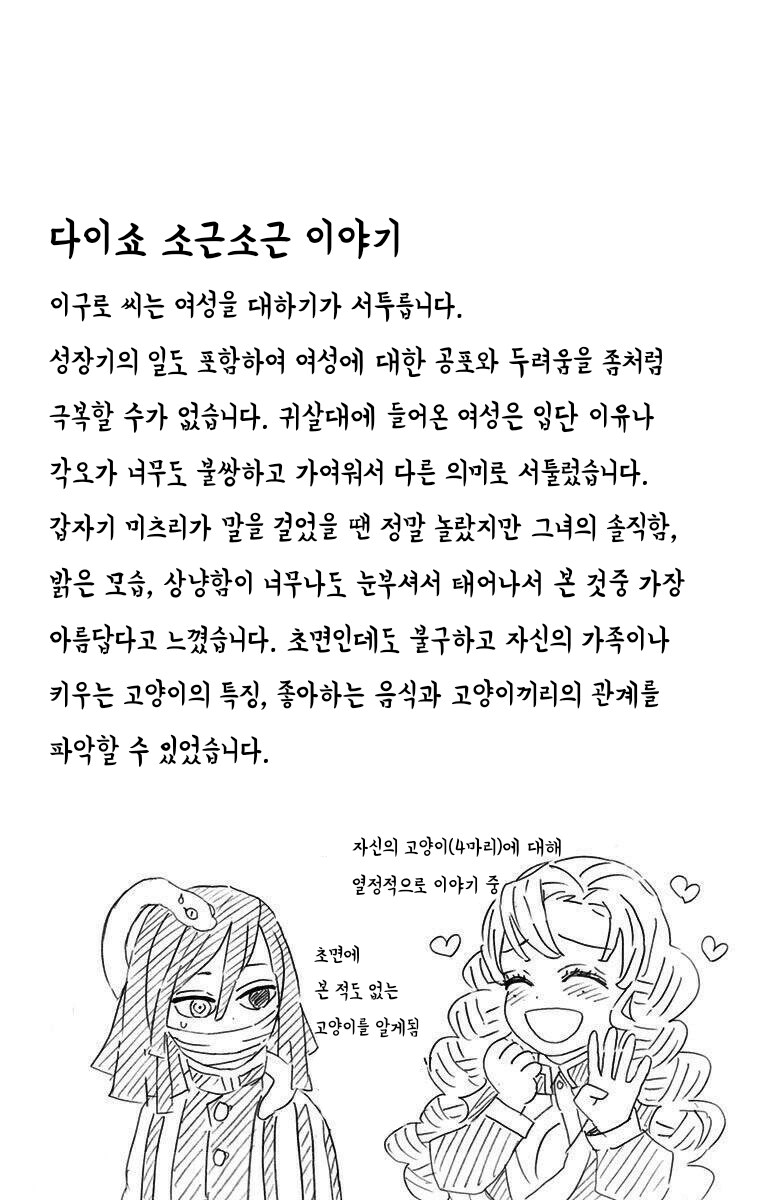 다이쇼 소근소근 이야기
이구로 씨는 여성을 대하기가 서투릅니다.
성장기의 일도 포함하여 여성에 대한 공포와 두려움을 좀처럼
극복할 수가 없습니다. 귀살대에 들어온 여성은 입단 이유나
각오가 너무도 불쌍하고 가여워서 다른 의미로 서툴렀습니다.
갑자기 미츠리가 말을 걸었을 땐 정말 놀랐지만 그녀의 솔직함,
밝은 모습, 상냥함이 너무나도 눈부셔서 태어나서 본 것중 가장
아름답다고 느꼈습니다. 초면인데도 불구하고 자신의 가족이나
키우는 고양이의 특징, 좋아하는 음식과 고양이끼리의 관계를
파악할 수 있었습니다.
자신의 고양이(4마리)에 대해
열정적으로 이야기 중
초면에
본 적도 없는
고양이를 알게됨